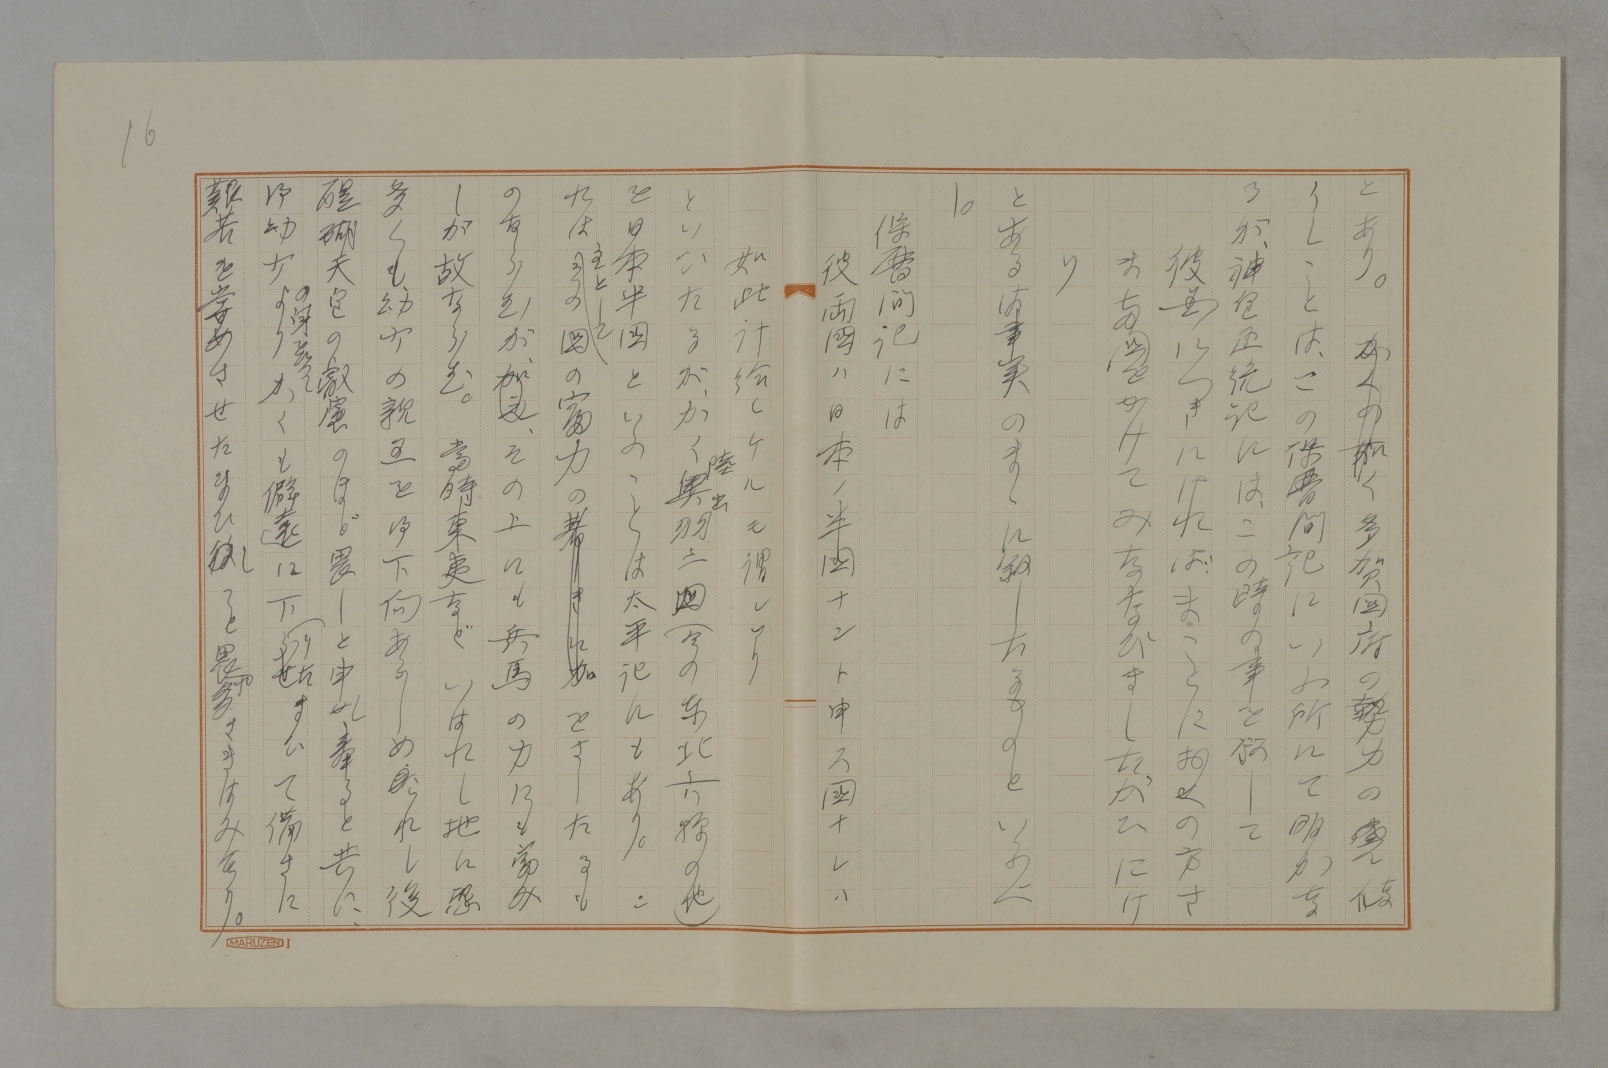 16
とあり。かくの如く多賀国府の勢力の盛な
りしことは、この保暦間記にいふ所にて明かな
るが、神皇正統記には、この時の事を叙して
彼国につきにければまことにおくの方さ
ま両国をかけてみななびきしたがひにけ
り
とあるは事実のまゝに叙したるものといふべ
し。
保暦間記には
彼両国ハ日本ノ半国ナント申ス国ナレハ
如此計給ヒケルモ謂レナリ
といひたるが、かく奥羽二国(今の東北六県の地)
陸出
を日本半国といふことは太平記にもあり。こ
れは
主として
の国の富力の著しきに如をさしたるも
のならむが、加之、その上にも兵馬の力にも富み
しが故ならむ。当時東夷など いはれし地に恐
多くも幼少の親王を御下向あらしめられし後
醍醐天皇の叡慮のほど畏しと申し奉ると共に、
御幼少より
の身を以て
かくも僻遠に下
りた
まひて備さに
艱苦を嘗めさせたまひ
し
こと畏
さきはみなり。
MARUZEN I